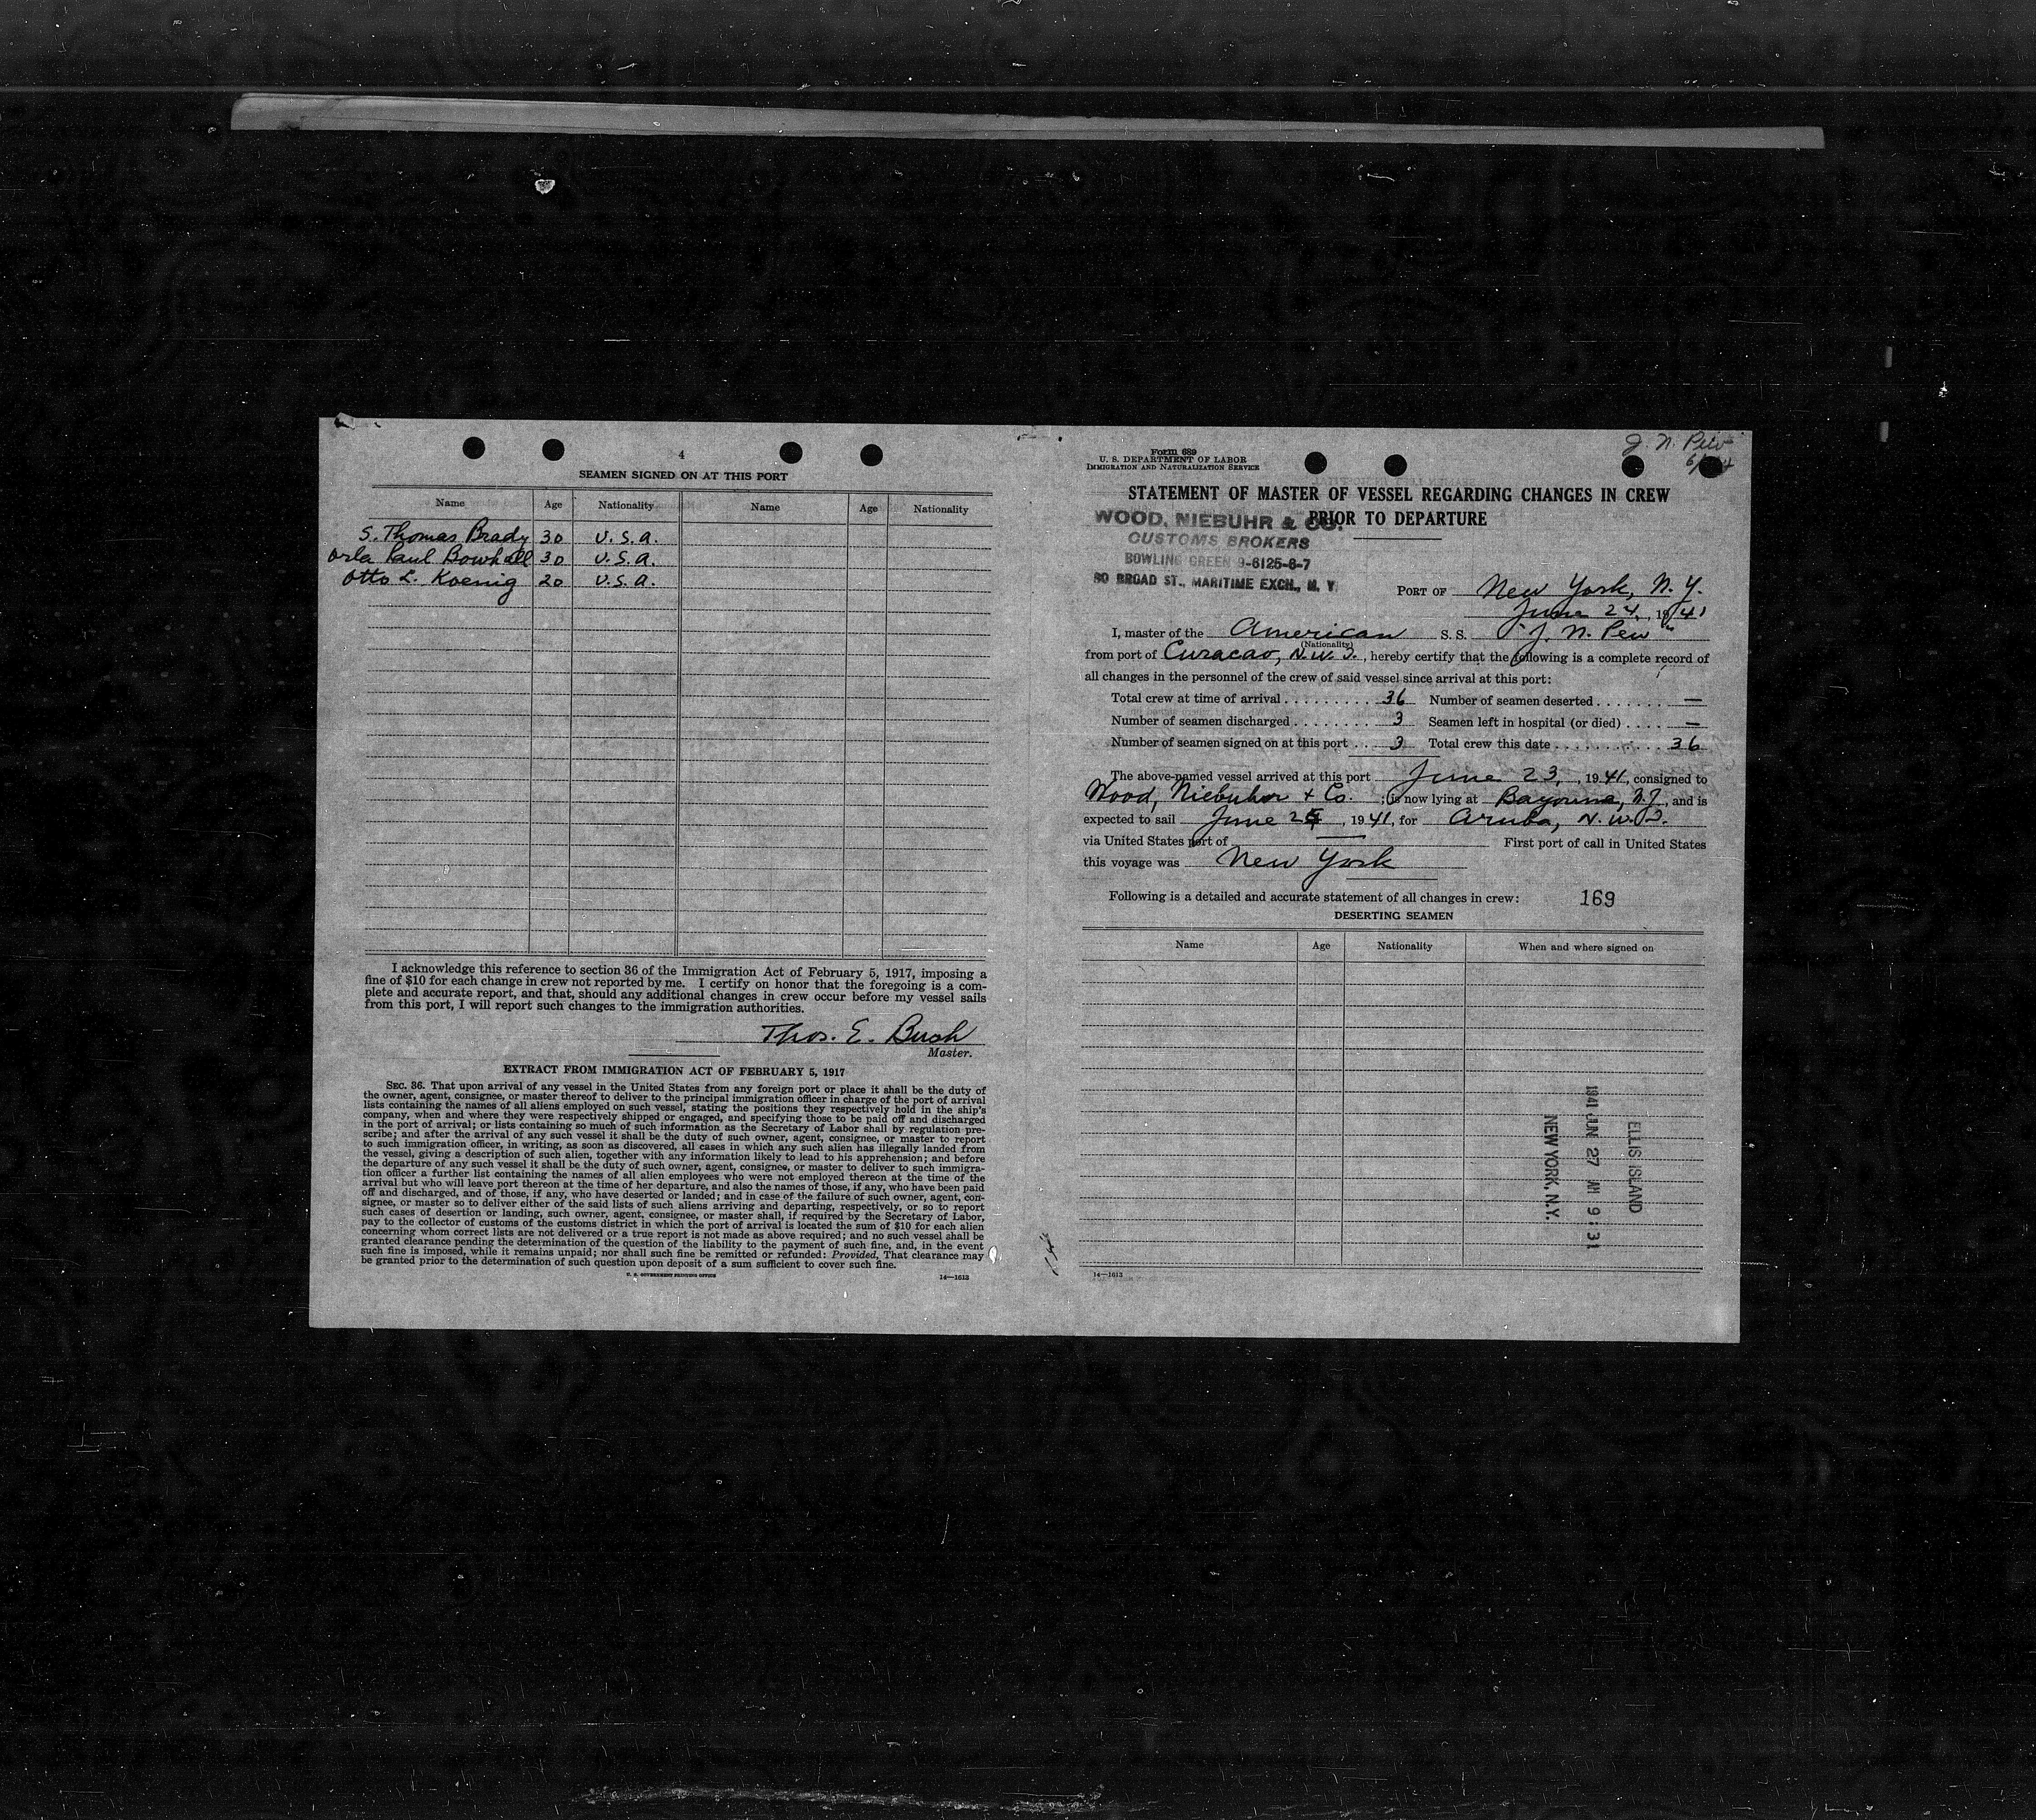 4
SEAMEN SIGNED ON AT THIS PORT
Name Age Nationality Name Age Nationality
S. Thomas Brady 30 U.S.A.
Orla Paul Bowhall 30 U.S.A.
Otto L. Koenig 20 U.S.A.
I acknowledge this reference to section 36 of the Immigration Act of February 5, 1917, imposing a
fine of $10 for each change in crew not reported by me. I certify on honor that the foregoing is a com-
plete and accurate report, and that, should any additional changes in crew occur before my vessel sails
from this port, I will report such changes to the immigration authorities.
Thos. E. Bush
Master.
EXTRACT FROM IMMIGRATION ACT OF FEBRUARY 5, 1917
SEC. 36. That upon arrival of any vessel in the United States from any foreign port or place it shall be the duty of
the owner, agent, consignee, or master thereof to deliver to the principal immigration officer in charge of the port of arrival
lists containing the names of all aliens employed on such vessel, stating the positions they respectively hold in the ship's
company, when and where they were respectively shipped or engaged, and specifying those to be paid off and discharged
in the port of arrival; or lists containing so much of such information as the Secretary of Labor shall by regulation pre-
scribe; and after the arrival of any such vessel it shall be the duty of such owner, agent, consignee, or master to report
to such immigration officer, in writing, as soon as discovered, all cases in which any such alien has illegally landed from
the vessel, giving a description of such alien, together with any information likely to lead to his apprehension; and before
the departure of any such vessel it shall be the duty of such owner, agent, consignee, or master to deliver to such immigra-
tion officer a further list containing the names of all alien employees who were not employed thereon at the time of the
arrival but who will leave port thereon at the time of her departure, and also the names of those, if any, who have been paid
off and discharged, and of those, if any, who have deserted or landed; and in case of the failure of such owner, agent, con-
signee, or master so to deliver either of the said lists of such aliens arriving and departing, respectively, or so to report
such cases of desertion or landing, such owner, agent, consignee, or master shall, if required by the Secretary of Labor,
pay to the collector of customs of the customs district in which the port of arrival is located the sum of $10 for each alien
concerning whom correct lists are not delivered or a true report is not made as above required; and no such vessel shall be
granted clearance pending the determination of the question of the liability to the payment of such fine, and, in the event
such fine is imposed, while it remains unpaid; nor shall such fine be remitted or refunded: Provided, That clearance may
be granted prior to the determination of such question upon deposit of a sum sufficient to cover such fine.
U. S. GOVERNMENT PRINTING OFFICE 14—1613
J. N. Pew
Form 689
U. S. DEPARTMENT OF LABOR
IMMIGRATION AND NATURALIZATION SERVICE
STATEMENT OF MASTER OF VESSEL REGARDING CHANGES IN CREW
PRIOR TO DEPARTURE
WOOD, NIEBUHR & CO.
CUSTOMS BROKERS
BOWLING GREEN 9-6125-6-7
80 BROAD ST., MARITIME EXCH., N. Y.
PORT OF New York, N. Y.
June 24, 1941
I, master of the American S. S. "J. N. Pew"
(Nationality)
from port of Curacao, N.W.I., hereby certify that the following is a complete record of
all changes in the personnel of the crew of said vessel since arrival at this port:
Total crew at time of arrival . . . . . . . . . . 36 Number of seamen deserted . . . . . . . . —
Number of seamen discharged . . . . . . . . . 3 Seamen left in hospital (or died) . . . . —
Number of seamen signed on at this port . . 3 Total crew this date . . . . . . . . . . . . . . 36
The above-named vessel arrived at this port June 23, 1941, consigned to
Wood, Niebuhr & Co. ; is now lying at Bayonne, N.J., and is
expected to sail June 25, 1941, for Aruba, N.W.I.
via United States port of — First port of call in United States
this voyage was New York
Following is a detailed and accurate statement of all changes in crew: 169
DESERTING SEAMEN
Name Age Nationality When and where signed on
ELLIS ISLAND
1941 JUN 27 AM 9:31
NEW YORK, N.Y.
14—1613